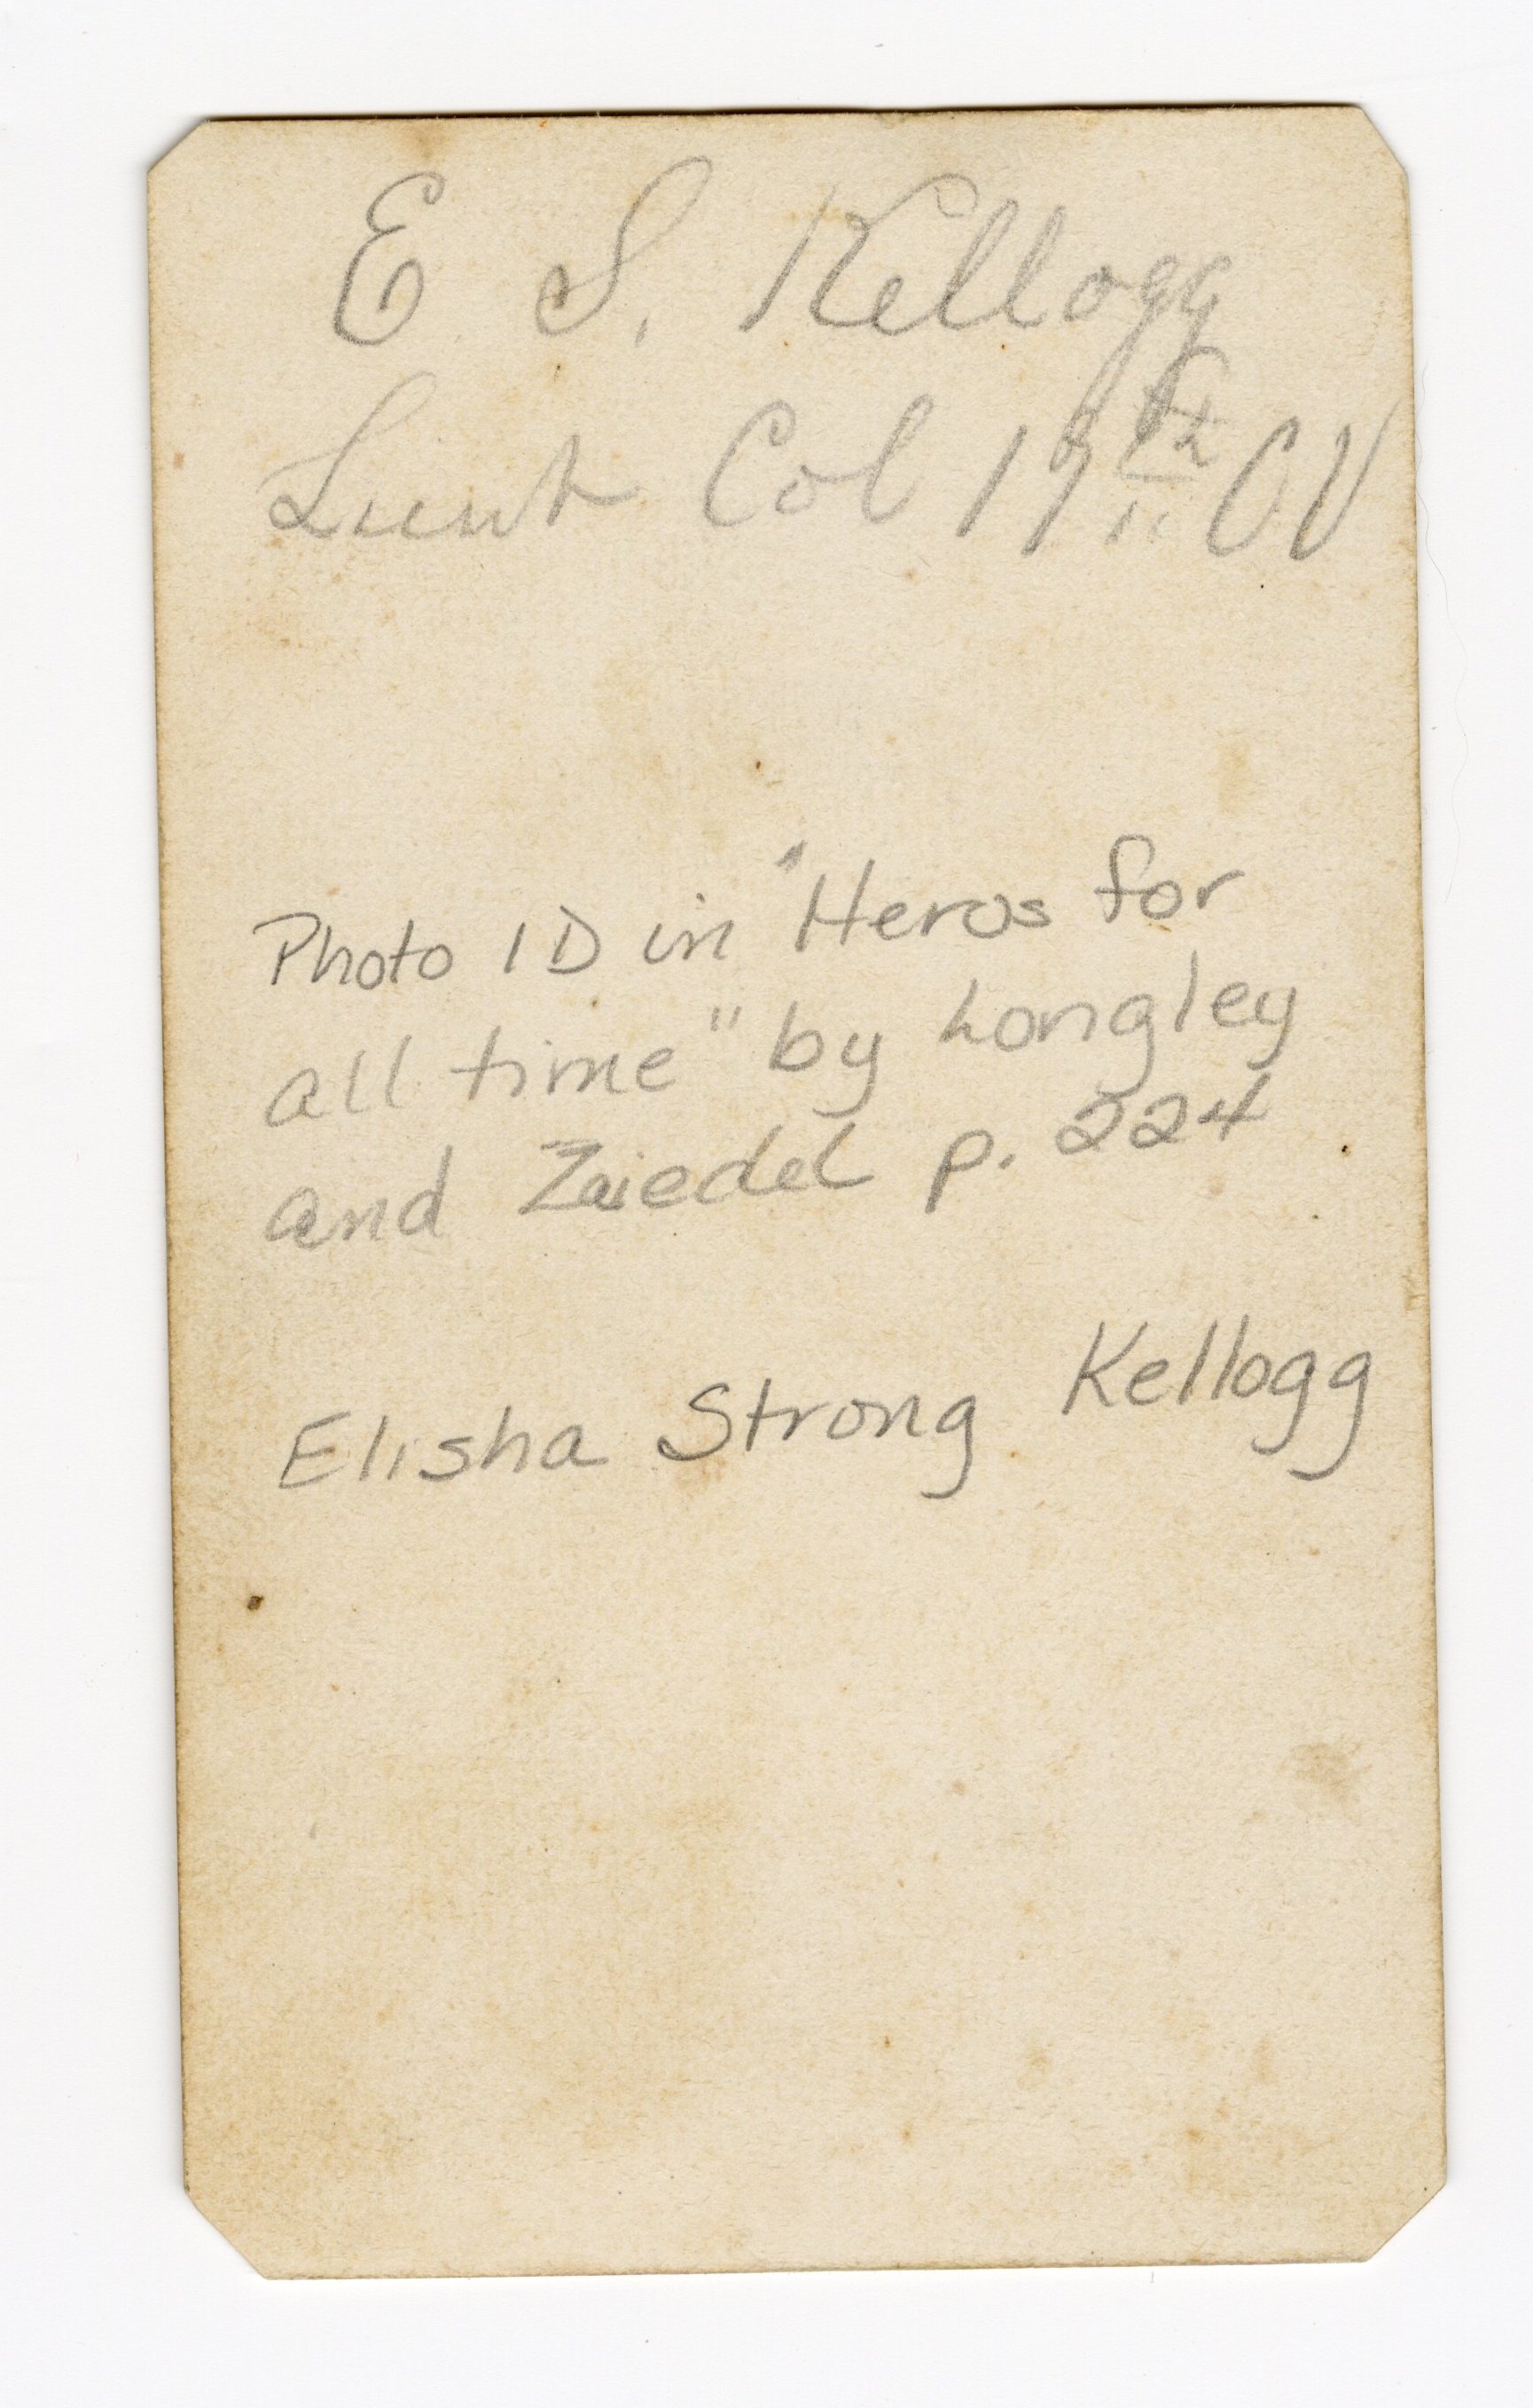 E S. Kellogg
Lieut Col 19th CV
Photo ID in "Heros for
all time" by Longley
and Zaiedel p. 224
Elisha Strong Kellogg